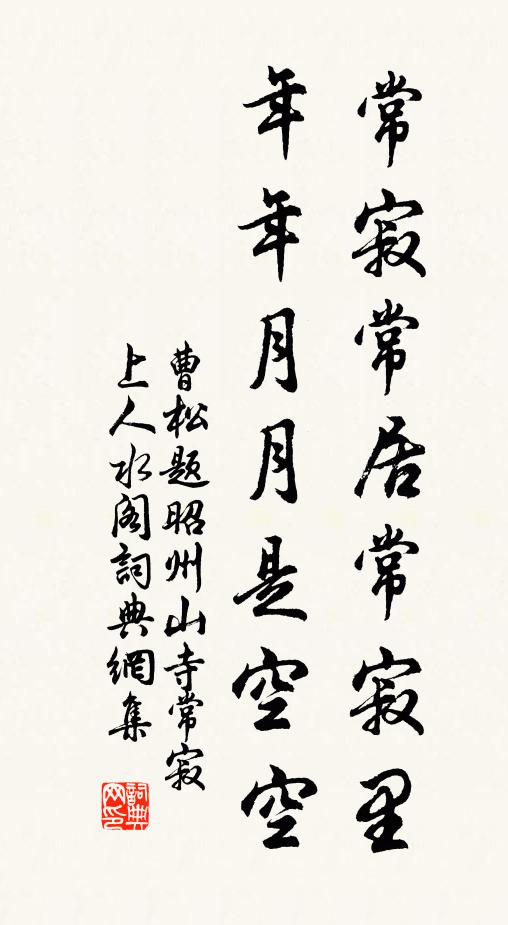 常寂常居常寂里
年年月月是空空
曹松题昭州山寺常寂
上人水阁詞典網集
詞典网印